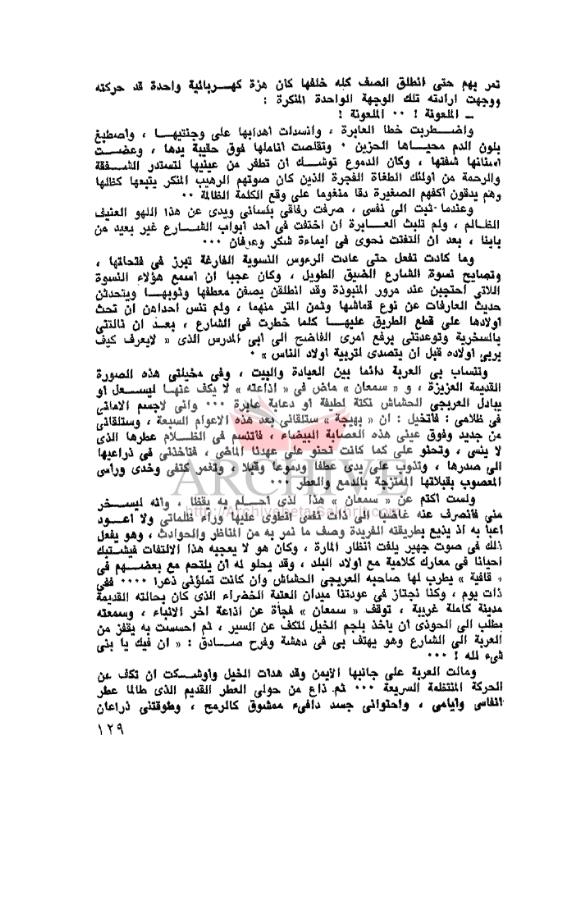 تمر بهم حتى انطلق الصف كله خلفها كان هزة كهربائية واحدة قد حركته
ووجهت ارادته تلك الوجهة الواحدة المنكرة :
ـ الملعونة ! ٠٠ الملعونة !
واضطربت خطا العابرة ، وانسدلت اهدابها على وجنتيها ، واصطبغ
بلون الدم محياها الحزين ٠ وتقلصت اناملها فوق حقيبة يدها ، وعضت
اسنانها شفتها ، وكان الدموع توشك ان تطفر من عينيها لتستدر الشفقة
والرحمة من اولئك الطغاة الفجرة الذين كان صوتهم الرهيب المنكر يتبعها كظلها
وهم يدقون اكفهم الصغيرة دقا منغوما على وقع الكلمة الظالمة ٠٠
وعندما ثبت الى نفسى ، صرفت رفاقى بلسانى ويدى عن هذا اللهو العنيف
الظالم ، ولم تلبث العابرة ان اختفت فى احد أبواب الشارع غير بعيد من
بابنا ، بعد ان التفتت نحوى فى ايماءة شكر وعرفان ٠٠٠
وما كادت تفعل حتى عادت الرءوس النسوية الفارغة تبرز فى فتحاتها ،
وتصايح نسوة الشارع الضيق الطويل ، وكان عجبا ان اسمع هؤلاء النسوة
اللائى احتجبن عند مرور المنبوذة وقد انطلقن يصفن معطفها وثوبها ويتحدثن
حديث العارفات عن نوع قماشها وثمن المتر منهما ، ولم تنس احداهن ان تحث
اولادها على قطع الطريق عليها كلما خطرت فى الشارع ، بعد ان نالتنى
بالسخرية وتوعدتنى برفع امرى الفاضح الى أبى المدرس الذى « لايعرف كيف
يربى اولاده قبل ان يتصدى لتربية اولاد الناس » ٠
وتنساب بى العربة دائما بين العيادة والبيت ، وفى مخيلتى هذه الصورة
القديمة العزيزة ، و « سمعان » ماض فى « اذاعته » لا يكف عنها ليسعل او
يبادل العربجى الحشاش نكتة لطيفة او دعابة عابرة ٠٠٠ وانى لاجسم الامانى
فى ظلامى : فاتخيل : ان « بهيجة » ستلقانى بعد هذه الاعوام السبعة ، وستلقانى
من جديد وفوق عينى هذه العصابة البيضاء ، فاتنسم فى الظلام عطرها الذى
لا ينسى ، وتحنو على كما كانت تحنو على عهدنا الماضى ، فتاخذنى فى ذراعيها
الى صدرها ، وتذوب على يدى عطفا ودموعا وقبلا ، وتغمر كتفى وخدى وراسى
المعصوب بقبلاتها الممتزجة بالدمع والعطر ٠٠٠
ARCHIVE
http://Archivebeta.Sakhrit.com
ولست اكتم عن « سمعان » هذا الذى احلم به يقظا ، وانه ليسخر
منى فانصرف عنه غاضبا الى ذات نفسى انطوى عليها وراء ظلماتى ولا اعود
اعبا به اذ يذيع بطريقته الفريدة وصف ما نمر به من المناظر والحوادث ، وهو يفعل
ذلك فى صوت جهير يلفت انظار المارة ، وكان هو لا يعجبه هذا الالتفات فيشتبك
احيانا فى معارك كلامية مع اولاد البلد ، وقد يحلو له ان يلتحم مع بعضهم فى
« قافية » يطرب لها صاحبه العربجى الحشاش وان كانت تملؤنى ذعرا ٠٠٠٠ ففى
ذات يوم ، وكنا نجتاز فى عودتنا ميدان العتبة الخضراء الذى كان بحالته القديمة
مدينة كاملة غريبة ، توقف « سمعان » فجأة عن اذاعة اخر الانباء ، وسمعته
يطلب الى الحوذى ان ياخذ بلجم الخيل لتكف عن السير ، ثم احسست به يقفز من
العربة الى الشارع وهو يهتف بى فى دهشة وفرح صادق : « ان فيك يا بنى
شىء لله ! ٠٠٠
ومالت العربة على جانبها الايمن وقد هدات الخيل واوشكت ان تكف عن
الحركة المنتظمة السريعة ٠٠٠ ثم ذاع من حولى العطر القديم الذى طالما عطر
انفاسى وايامى ، واحتوانى جسد دافىء ممشوق كالرمح ، وطوقتنى ذراعان
١٢٩